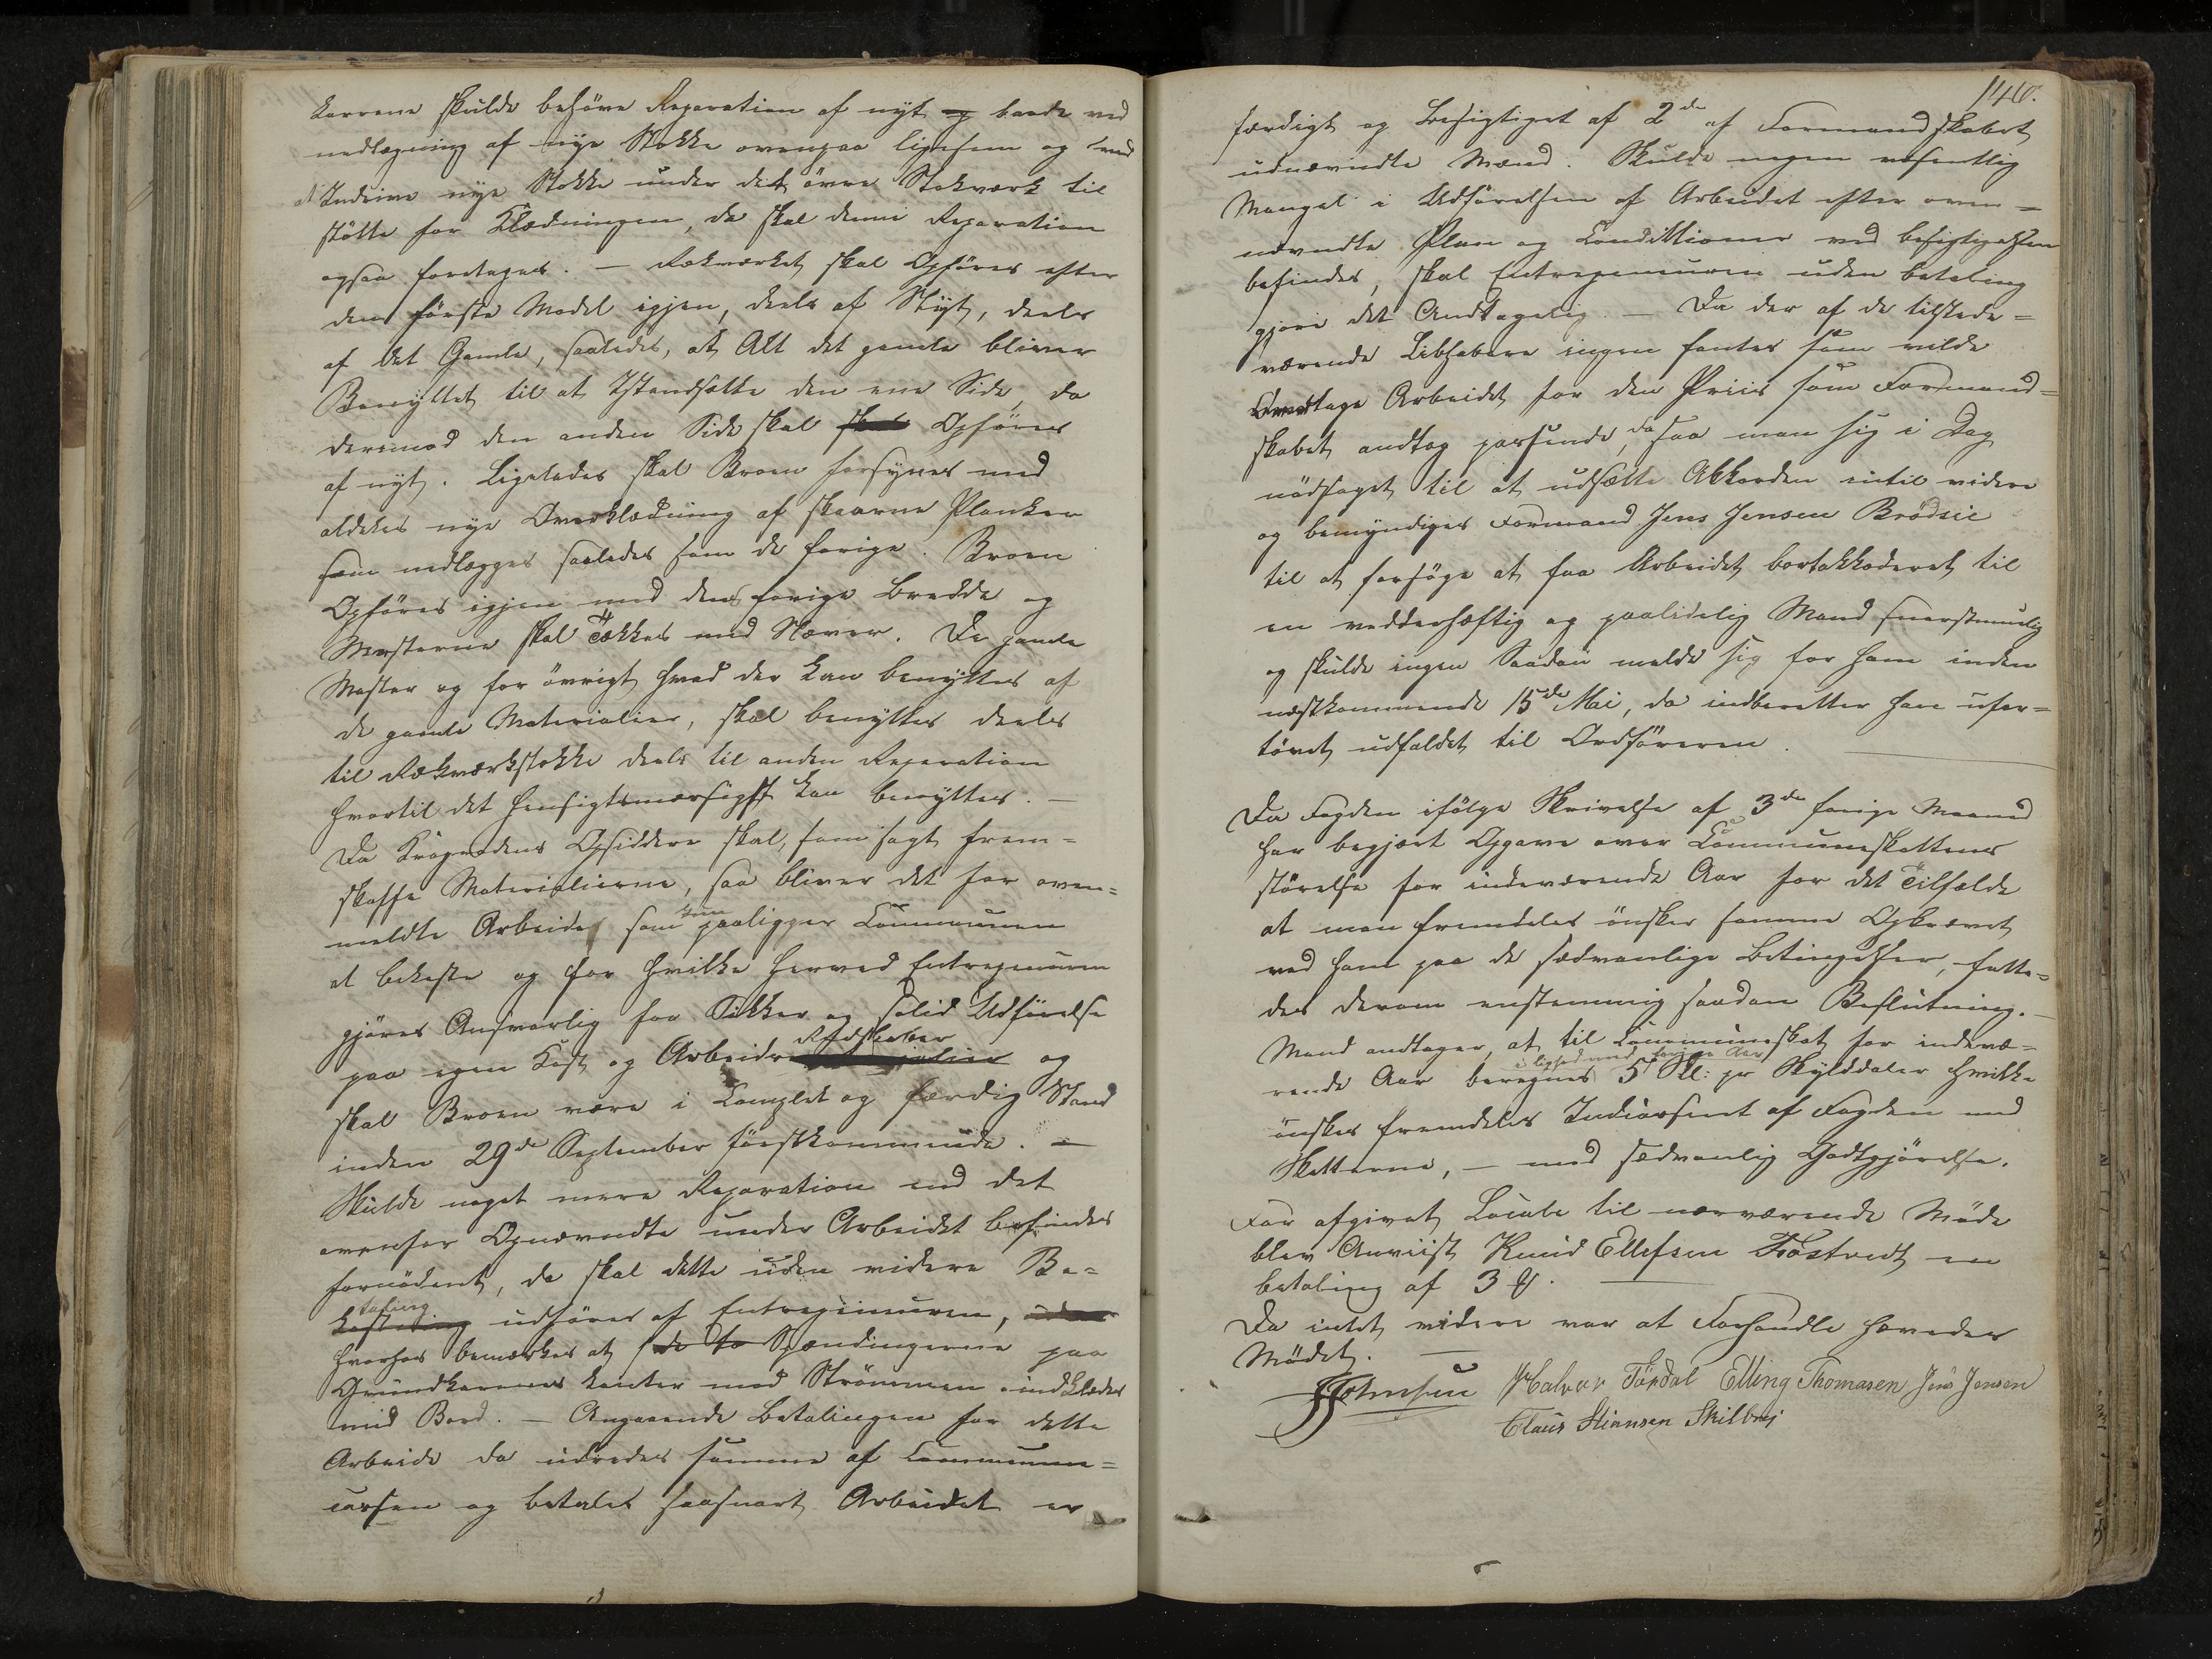 Karrene skulde behöve Reparation af nyt og baade ved
nedlægning af nye Stokke ovenpaa ligesom og med
at Inddrive nye Stokke under det övre Stokværk til
stötte for Klædningen, da skal denne Reparation
ogsaa foretages. — Rækværket skal Opföres efter
den förste Model igjen, deels af Nyt, deels
af det Gamle, saaledes, at Alt det gamle bliver
Benyttet til at Istandsætte den ene Side, da
derimod den anden Side skal skal Opföres
af nyt. Ligeledes skal Broen forsynes med
aldeles nye Overklædning af skaarne Planker
som nedlægges saaledes som de forige. Broen
Opföres igjen med den forige Bredde og
Masterne skal Tækkes med Næver. De gamle
Master og for övrigt hvad der kan benyttes af
de gamle Materialier, skal benyttes deels
til Rækværkstokke deels til anden Reparation
hvortil det hensigtsmæssigst kan benyttes. —
Da Krogrodens Opsiddere skal, som sagt frem=
skaffe Materialierne, saa bliver det for oven=
meldte Arbeide som kun paaligger Communen
at bekoste og for hvilke herved Entrepenuren
gjöres Ansvarlig for Sikker og solid Udförelse
paa egen Kost og Arbeids Redskaber og
skal Broen være i Complet og færdig Stand
inden 29de September förstkommende. —
Skulde noget mere Reparation end det
ovenfor Opnævndte under Arbeidet befindes
fornödent, da skal dette uden videre Be=
kostning taling udföres af Entrepenuren,
hvorhos bemærkes at de to Spændingerne paa
Grundkarrenes kanter mod Strömmen indklædes
med Bord. — Angaaende Betalingen for dette
Arbeide da udredes samme af Commune=
cassen og betales saasnart Arbeidet er
146.
færdigt og Besigtiget af 2de af Formandskabet
udnævndte Mænd. Skulde nogen væsentlig
Mangel i Udförelsen af Arbeidet efter oven=
nævndte Plan og Condittioner ved besigtigelsen
befindes, skal Entrepenuren uden betaling
gjöre det Andtagelig. — Da der af de tilstede=
værende Libhabere ingen fantes som vilde
Overtage Arbeidet for den Priis som Formand=
skabet andtog passende, da saa man sig i Dag
nödsaget til at udsætte Akkorden indtil videre
og bemyndiges Formand Jens Jensen Brödsie
til at forsöge at faa Arbeidet bortakkoderet til
en vederhæftig og paalidelig Mand snarestmuelig
og skulde ingen Saadan melde sig for ham inden
næstkommende 15de Mai, da indberetter han ufor=
tövet udfaldet til Ordföreren.
Da Fogden ifölge Skrivelse af 3de forige Maaned
har begjært Opgave over Communeskattens
störelse for indeværende Aar for det Tilfælde
at man fremdeles önsker samme Opkrævet
ved ham paa de sædvanlige Betingelser, fatte=
des derom enstemmig saadan Beslutning. —
Mand andtager, at til Communeskat for indevæ=
rende Aar beregnes i lighed med forrige Aar 5 Sk: pr Skylddaler hvilke
önskes fremdeles Indcasseret af Fogden med
Skatterne, — mod sædvanlig Godtgjörelse.
For afgivet Locale til nærværende Möde
blev Anviist Knud Ellefsen Tröstvedt en
betaling af 3 ₰.
Da intet videre var at Forhandle hævedes
Mödet. —
Halvor Tördal Elling Thomasen Jens Jensen
Claus Stiansen Skilbrej